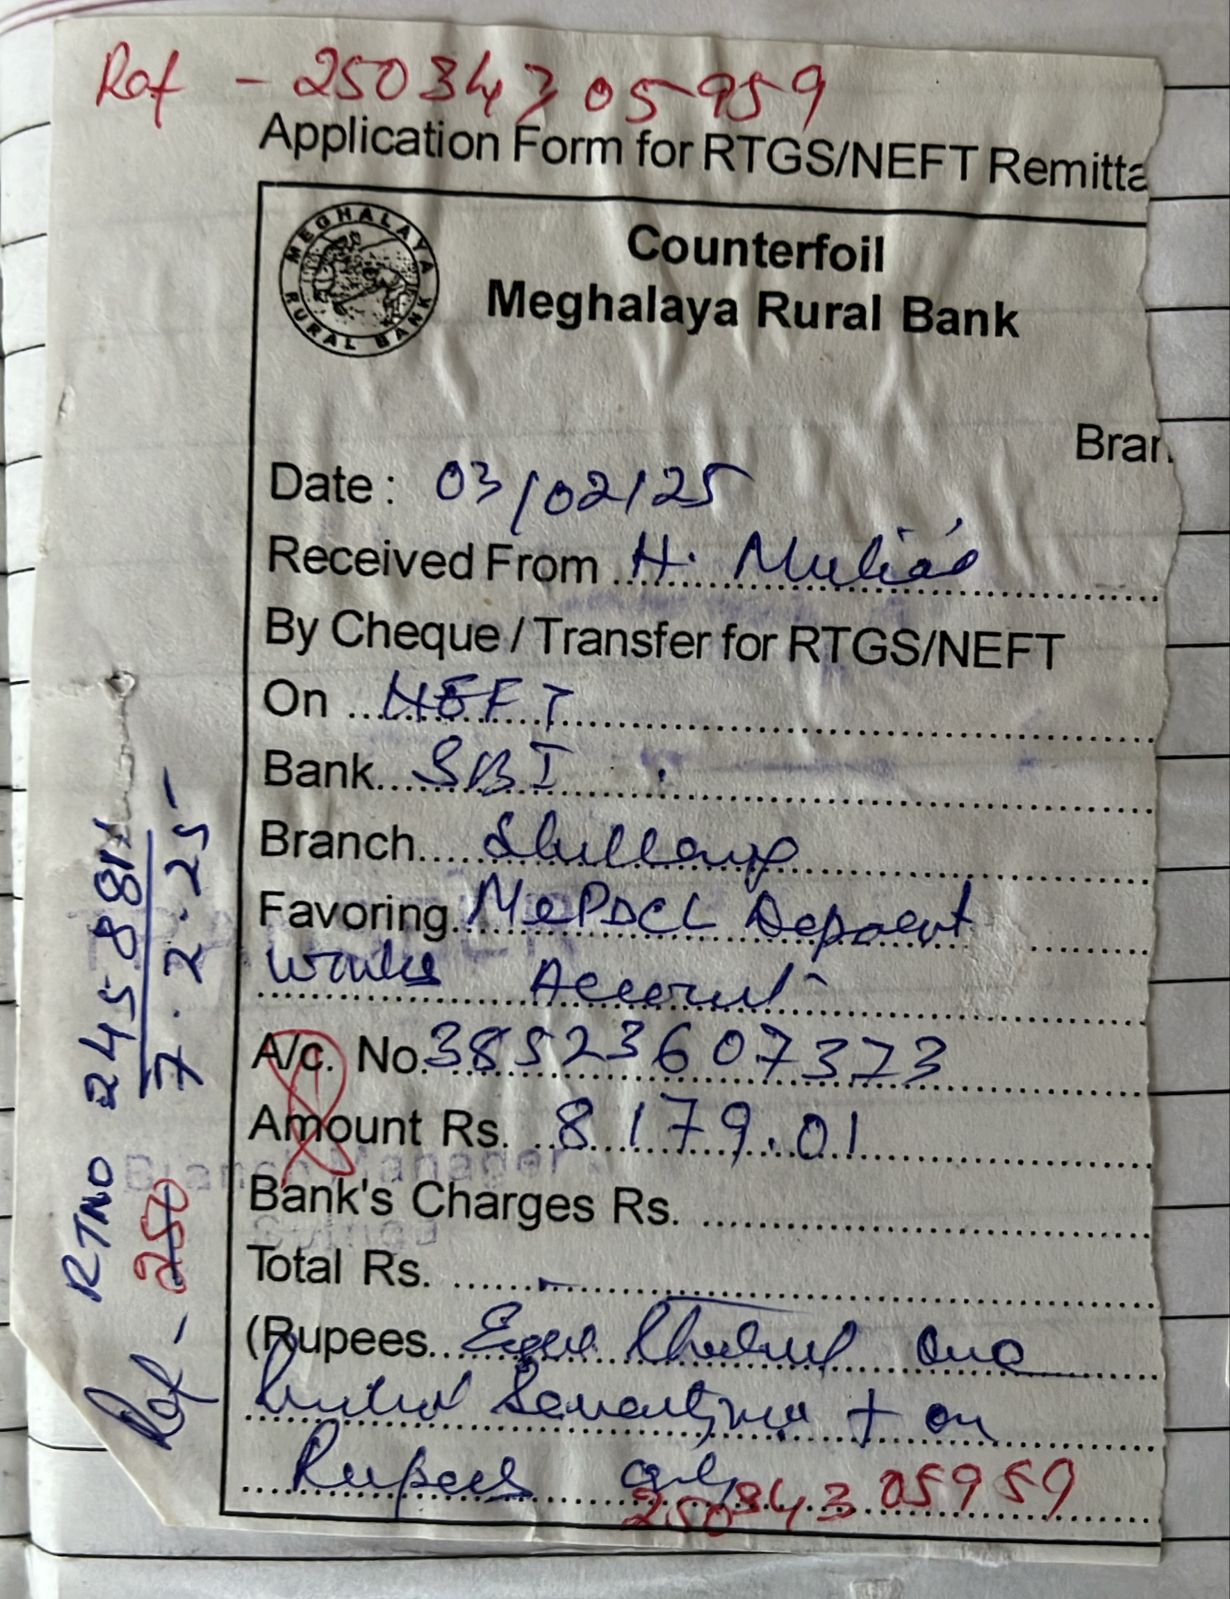 Ref - 25034305959
Application Form for RTGS/NEFT Remitta
MEGHALAYA RURAL BANK
Counterfoil
Meghalaya Rural Bank
Bran
Date : 03/02/25
Received From H.
By Cheque / Transfer for RTGS/NEFT
On NEFT
Bank SBI
Branch Shillong
Favoring MePDCL Deposit
Works Account
A/c. No. 38523607373
Amount Rs. 8179.01
Bank's Charges Rs.
Total Rs.
(Rupees Eight Thousand One
hundred Seventy nine + on
Rupees only
25034305959
RTNO 245881
7.2.25
Ref - 250
Branch Manager